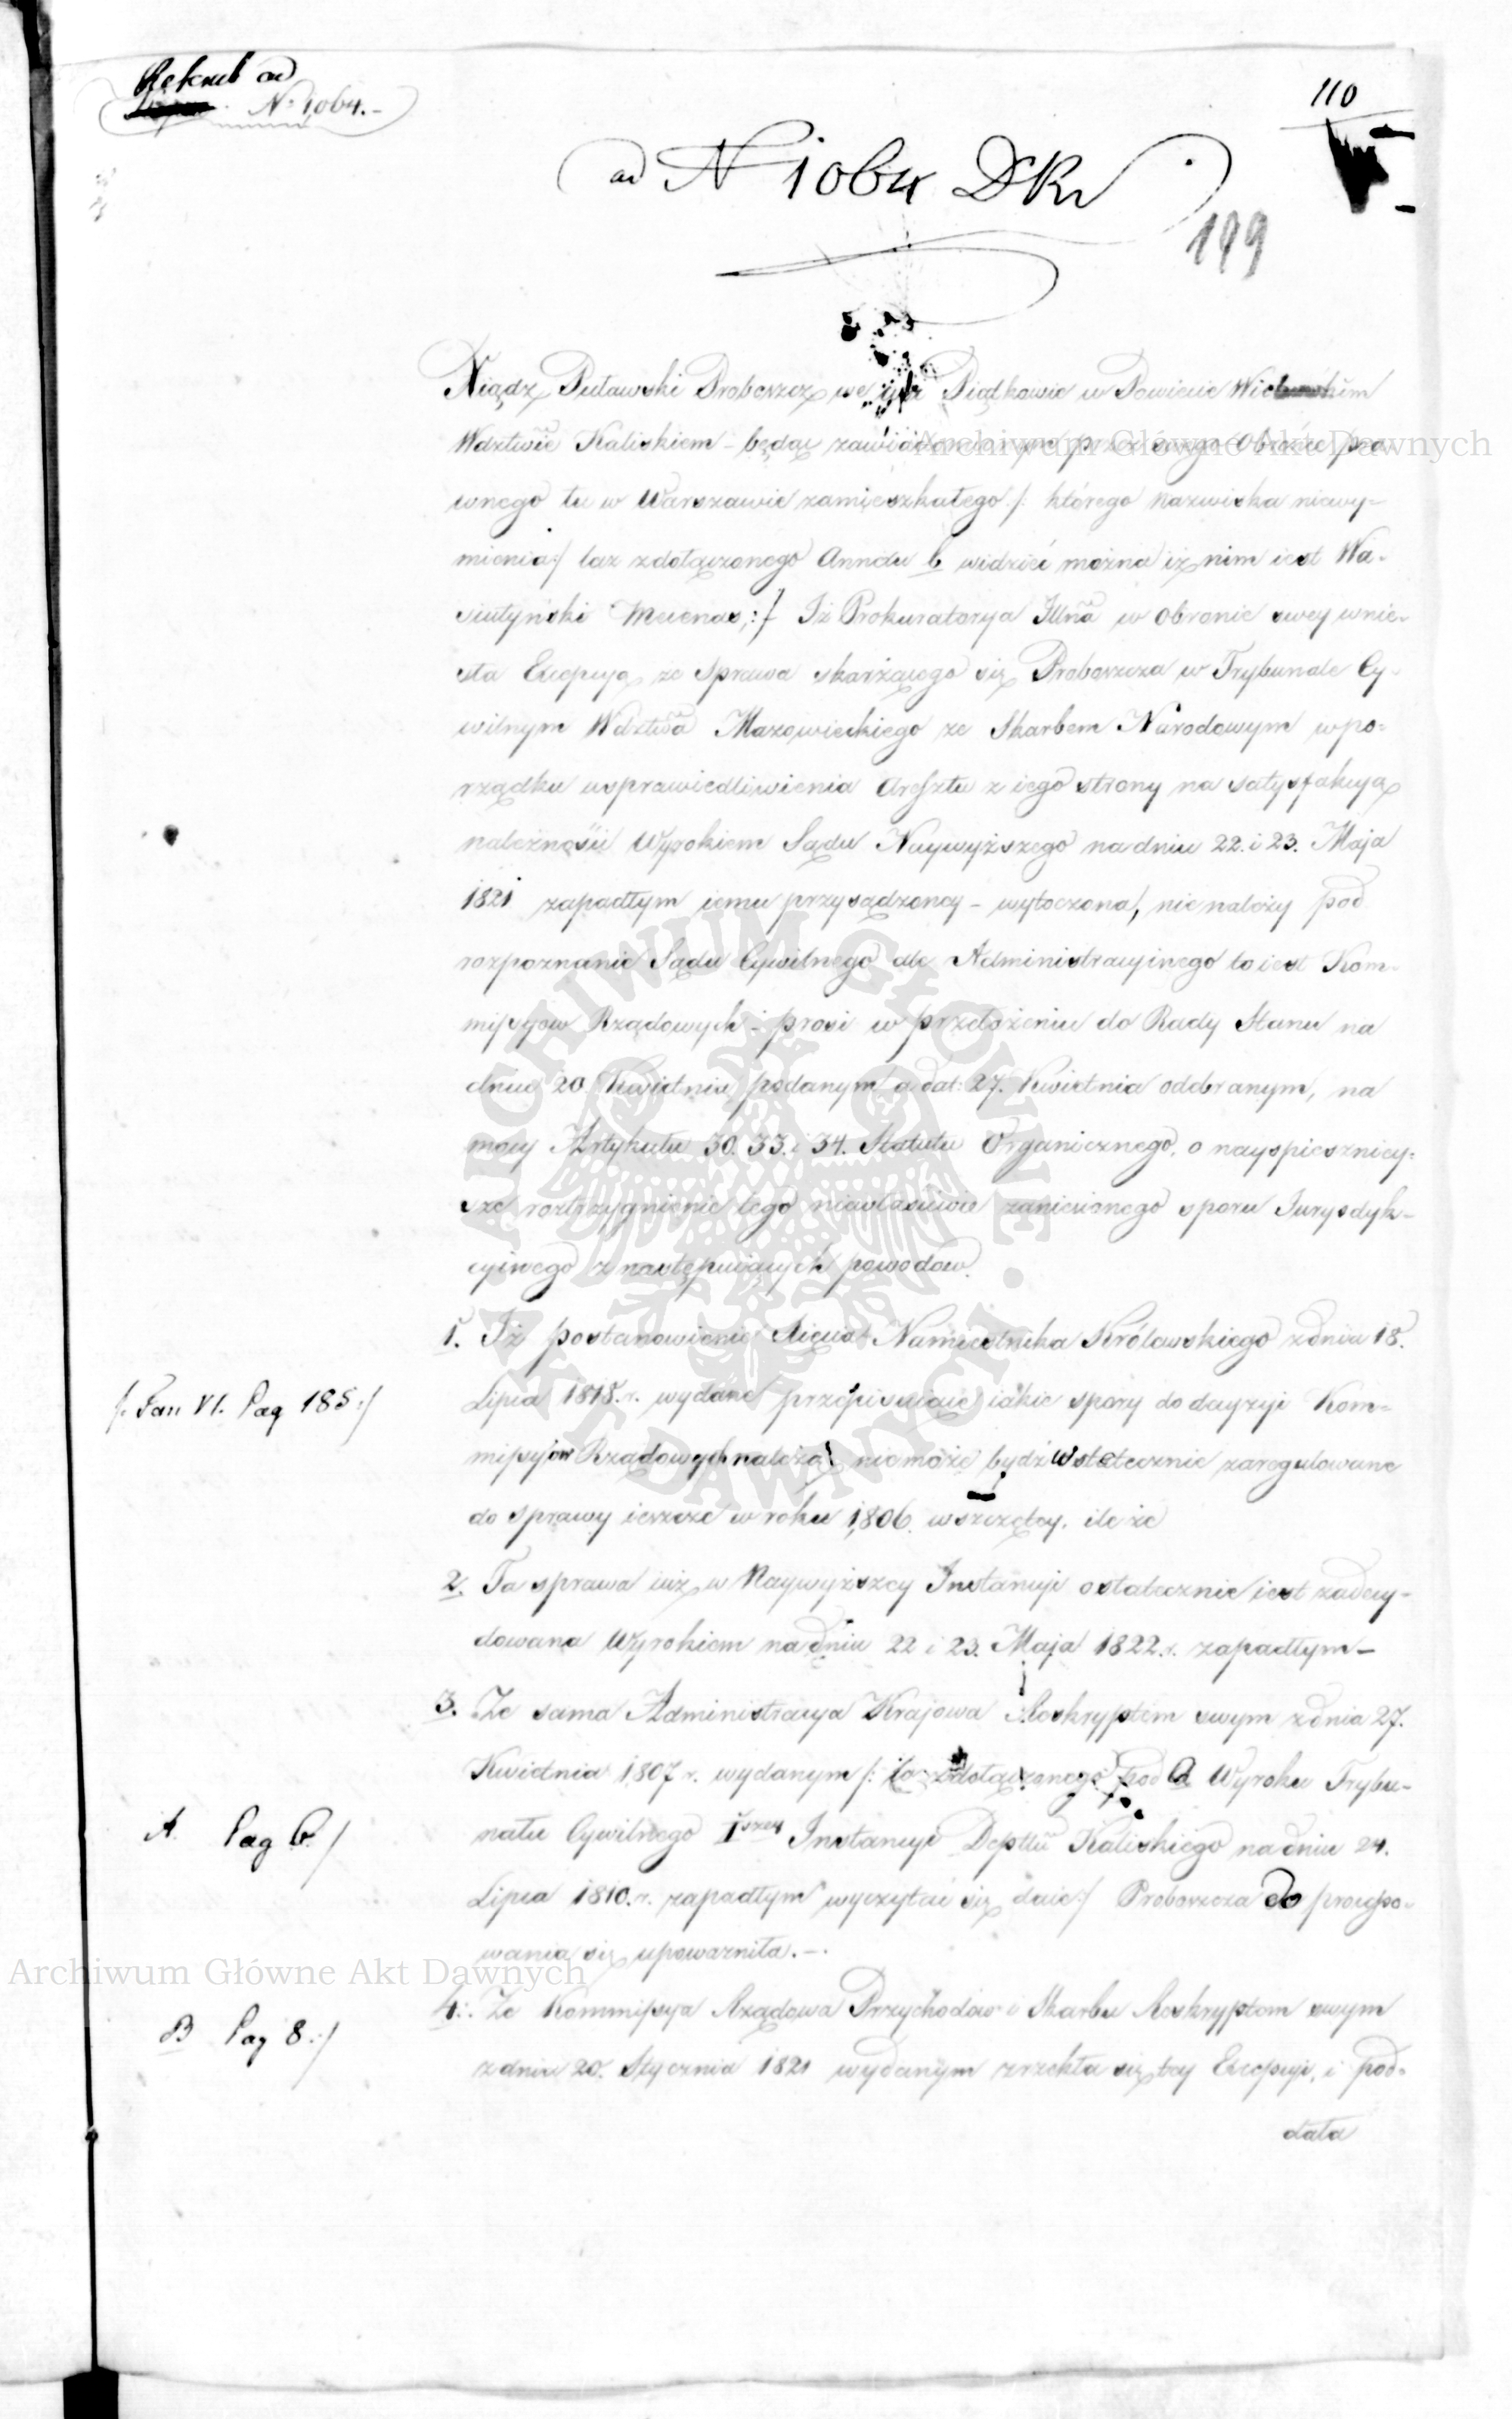 ad
N: 1,064.-
110
ad N 1064 DKr
199
Xiądz Puławski Proboszcz we wsi Piątkowie w Powiecie
Wdztwie Kaliskiem - będąc zawiadomionym przez swego Obrońcę pra-
wnego tu w Warszawie zamieszkałego /: którego nazwiska niewy-
mienia :/ lecz z dołączonego Annexu b widzieć można iż nim iest Wa-
siutyński Mecenas, :/ Iż Prokuratorya Jllna w obronie swey wnie-
sła Excepcyą że sprawa skarżącego się Proboszcza w Trybunale Cy-
wilnym Wdztwa Mazowieckiego ze Skarbem Narodowym w po-
rządku usprawiedliwienia Aresztu z iego strony na satysfakcyą
należności Wyrokiem Sądu Naywyższego na dniu 22. i 23. Maja
1821 zapadłym iemu przysądzoney - wytoczona, nie należy pod
rozpoznanie Sądu Cywilnego ale Administracyinego to iest Kom-
missyów Rządowych - prosi w przełożeniu do Rady Stanu na
dniu 20 Kwietnia podanym a dat: 27. Kwietnia odebranym, na
mocy Artykułu 30. 33. i 34. Statutu Organicznego, o nayspieszniey-
sze roztrzygnienie tego niewłaściwie zaniesionego sporu Jurysdyk-
cyinego z następuiących powodów.
1. Iż postanowienie Xięcia Namiestnika Królewskiego z dnia 18.
/: Tom VI. Pag 185 :/
Lipca 1818. r. wydane przepisuiące iakie spory do decyzyi Kom-
missyów Rządowych należą, nie może bydź wstecznie zaregulowane
do sprawy ieszcze w roku 1,806. wszczętey, ile że
2. Ta sprawa iuż w Naywyższey Instancyi ostatecznie iest zadecy-
dowana Wyrokiem na dniu 22 i 23. Maja 1822. r. zapadłym -
3. Że sama Administracya Krajowa Reskryptem swym z dnia 27.
Kwietnia 1,807 r. wydanym /: co z dołączonego pod a Wyroku Trybu-
A. Pag 6. /
nału Cywilnego Iszey Instancyi Depttu Kaliskiego na dniu 24.
Lipca 1810. r. zapadłym wyczytać się daie :/ Proboszcza do processo-
wania się upoważniła. -.
4. Że Kommissya Rządowa Przychodów i Skarbu Reskryptem swym
B Pag 8. :/
z dnia 20. Stycznia 1821 wydanym zrzekła się tey Excepcyi, i pod-
dała
Archiwum Główne Akt Dawnych
Archiwum Główne Akt Dawnych
ARCHIWUM GŁÓWNE AKT DAWNYCH